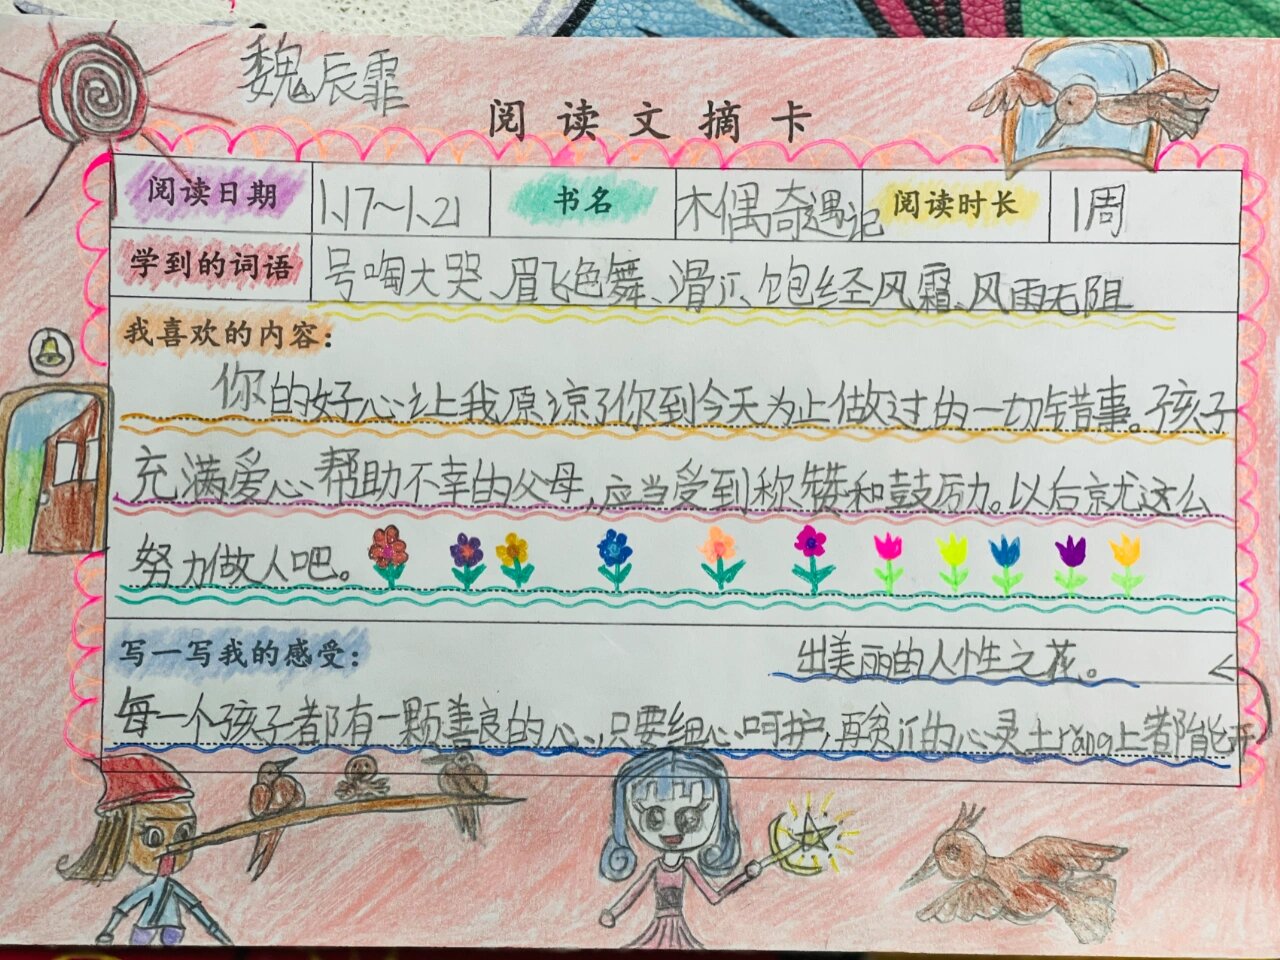 魏辰霏
阅读文摘卡
阅读日期 1、17~1、21 书名 木偶奇遇记 阅读时长 1周
学到的词语 号啕大哭、眉飞色舞、滑冮、饱经风霜、风雨无阻
我喜欢的内容：
你的好心让我原谅了你到今天为止做过的一切错事。孩子
充满爱心帮助不幸的父母，应当受到称赞和鼓励。以后就这么
努力做人吧。
写一写我的感受：
出美丽的人性之花。
每一个孩子都有一颗善良的心，只要细心呵护，再贫冮的心灵土rǎng上都能开